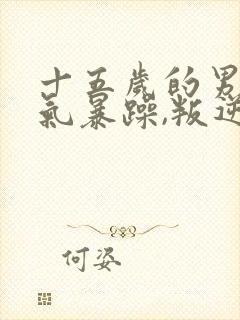 十五歲的男
氣暴躁,叛逆
何姿